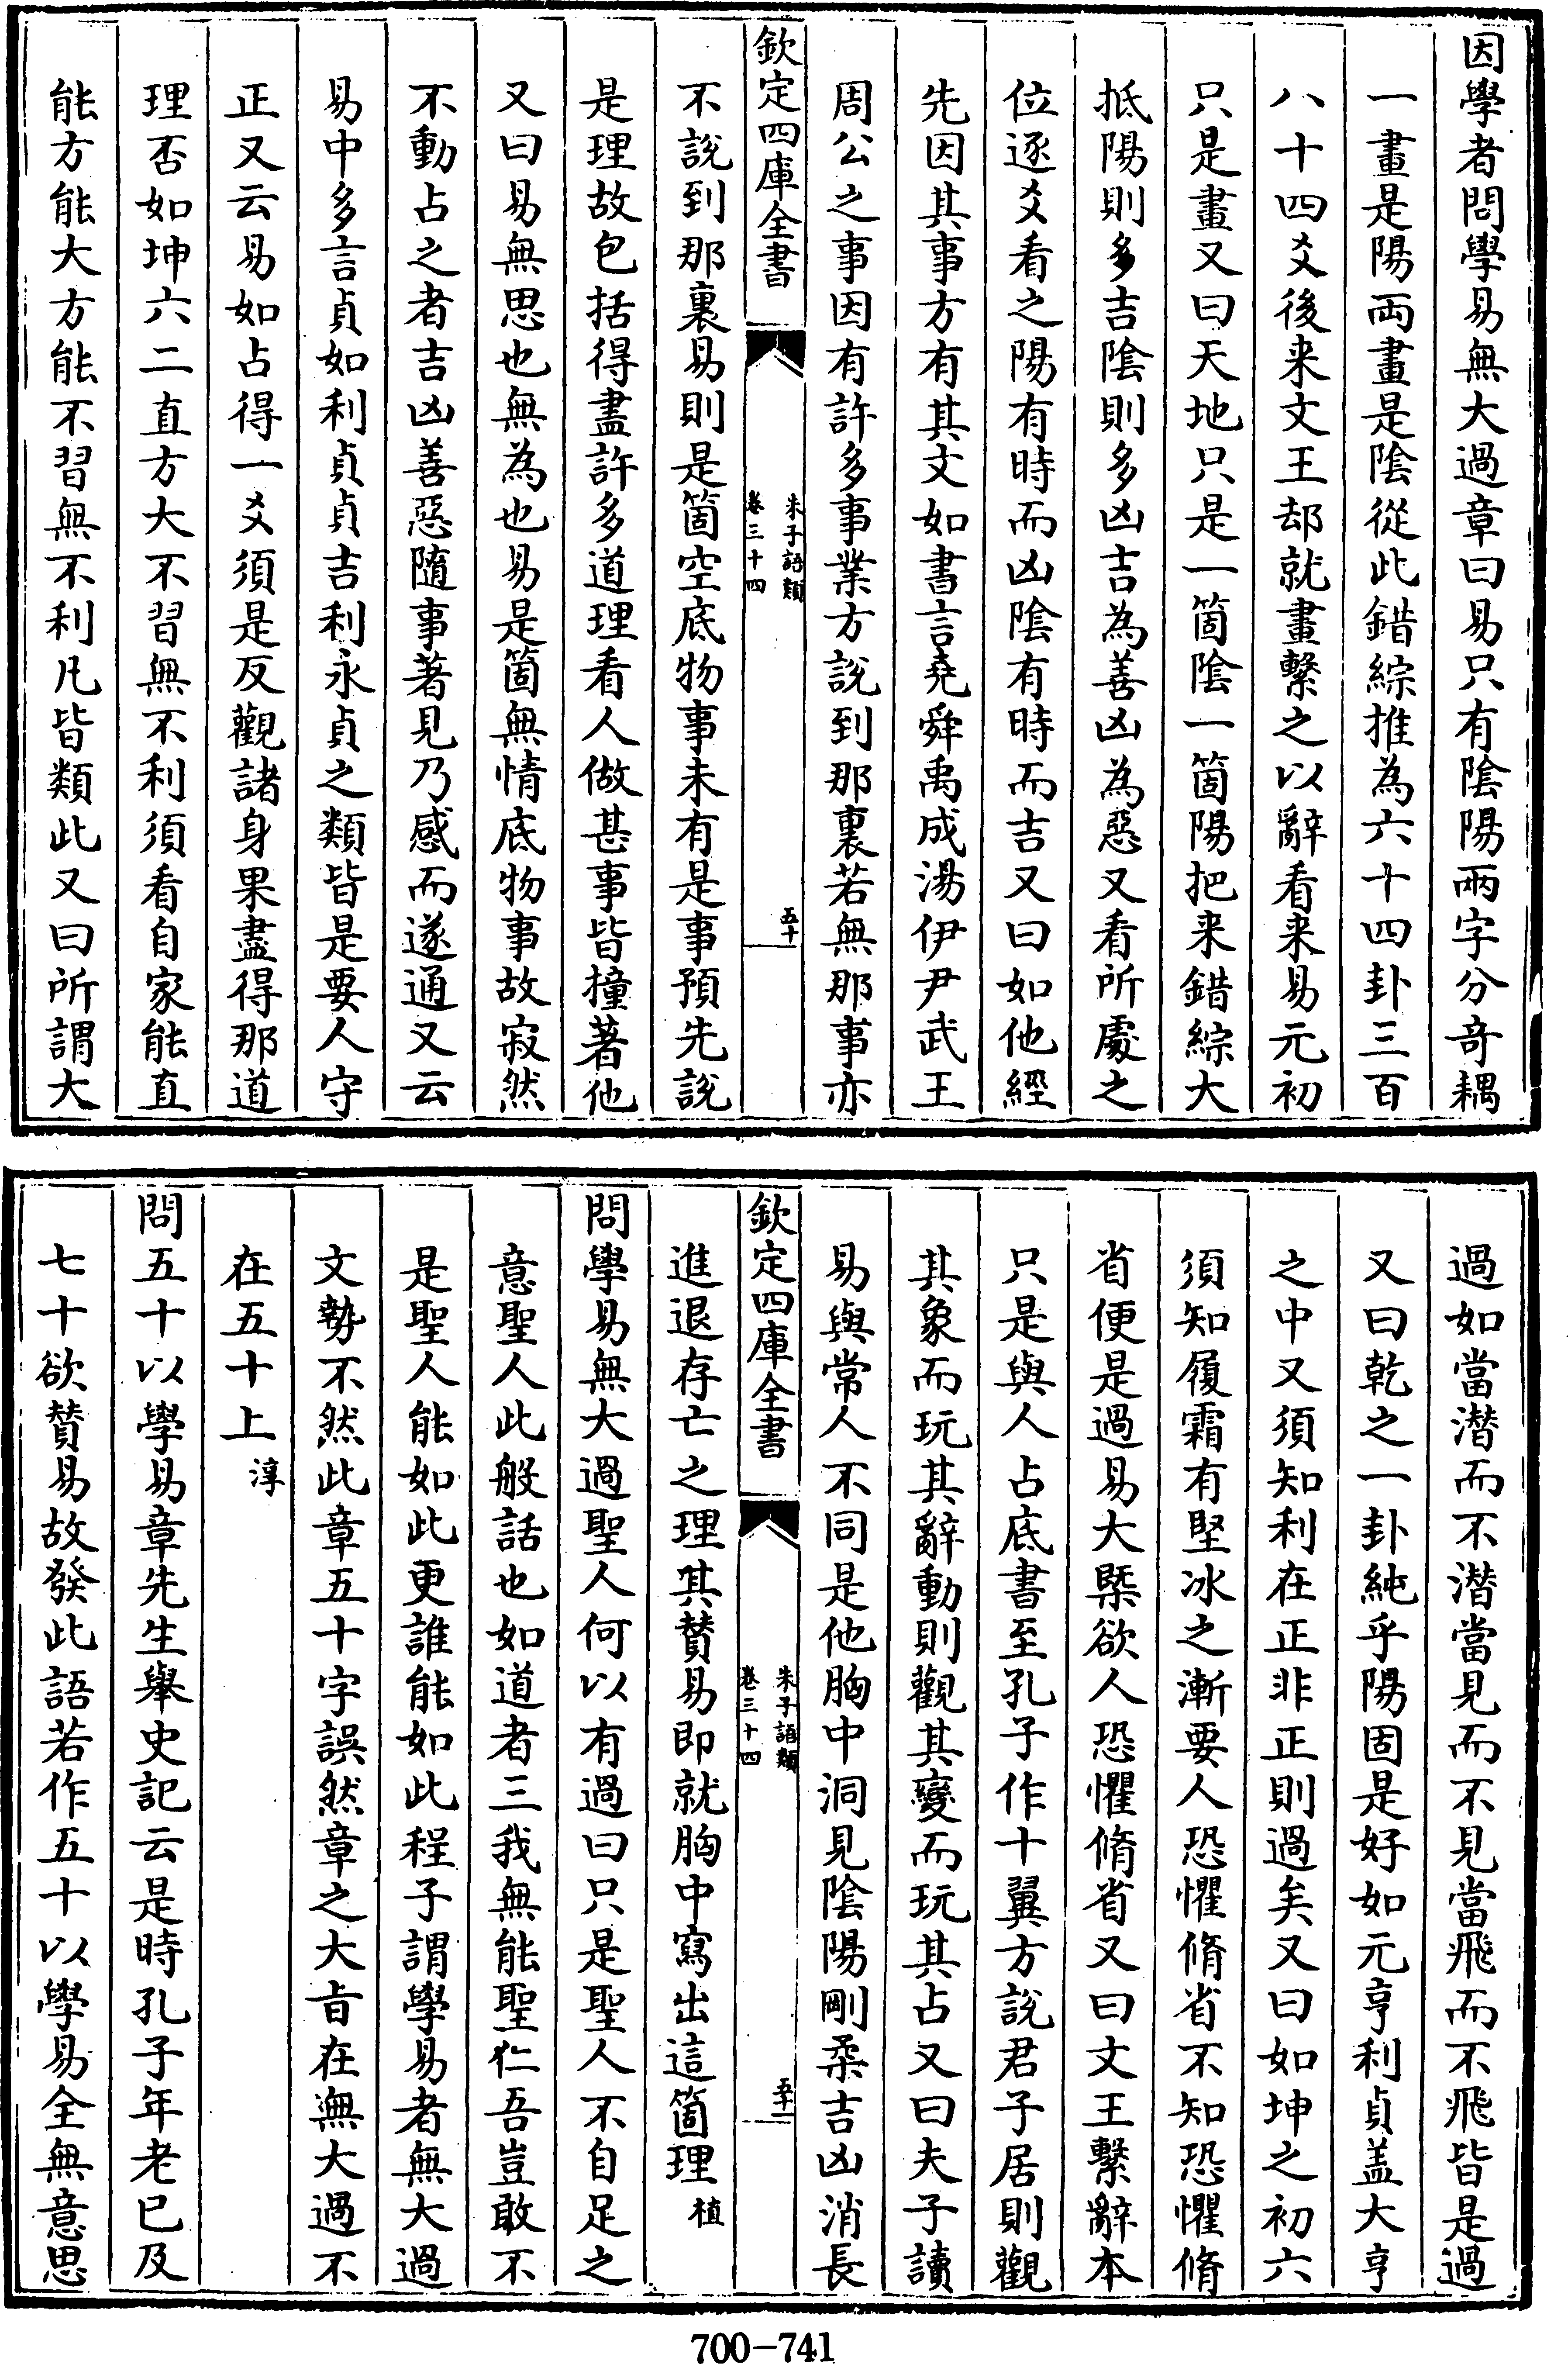 因學者問學易無大過章曰易只有陰陽兩字分奇耦
一畫是陽両畫是陰從此錯綜推為六十四卦三百
八十四爻後来文王却就畫繫之以辭看来易元初
只是畫又曰天地只是一箇陰一箇陽把来錯綜大
抵陽則多吉陰則多凶吉為善凶為惡又看所處之
位逐爻看之陽有時而凶陰有時而吉又曰如他經
先因其事方有其文如書言堯舜禹成湯伊尹武王
周公之事因有許多事業方說到那裏若無那事亦
欽定四庫全書
朱子語類
卷三十四
五十
不說到那裏易則是箇空底物事未有是事預先說
是理故包括得盡許多道理看人做甚事皆撞著他
又曰易無思也無為也易是箇無情底物事故寂然
不動占之者吉凶善惡隨事著見乃感而遂通又云
易中多言貞如利貞貞吉利永貞之類皆是要人守
正又云易如占得一爻須是反觀諸身果盡得那道
理否如坤六二直方大不習無不利須看自家能直
能方能大方能不習無不利凡皆類此又曰所謂大
過如當潛而不潛當見而不見當飛而不飛皆是過
又曰乾之一卦純乎陽固是好如元亨利貞盖大亨
之中又須知利在正非正則過矣又曰如坤之初六
須知履霜有堅冰之漸要人恐懼脩省不知恐懼脩
省便是過易大槩欲人恐懼脩省又曰文王繫辭本
只是與人占底書至孔子作十翼方說君子居則觀
其象而玩其辭動則觀其變而玩其占又曰夫子讀
易與常人不同是他胸中洞見陰陽剛柔吉凶消長
欽定四庫全書
朱子語類
卷三十四
五十一
進退存亡之理其贊易即就胸中寫出這箇理植
問學易無大過聖人何以有過曰只是聖人不自足之
意聖人此般話也如道者三我無能聖仁吾豈敢不
是聖人能如此更誰能如此程子謂學易者無大過
文勢不然此章五十字誤然章之大旨在無大過不
在五十上淳
問五十以學易章先生舉史記云是時孔子年老已及
七十欲贊易故發此語若作五十以學易全無意思
700-741